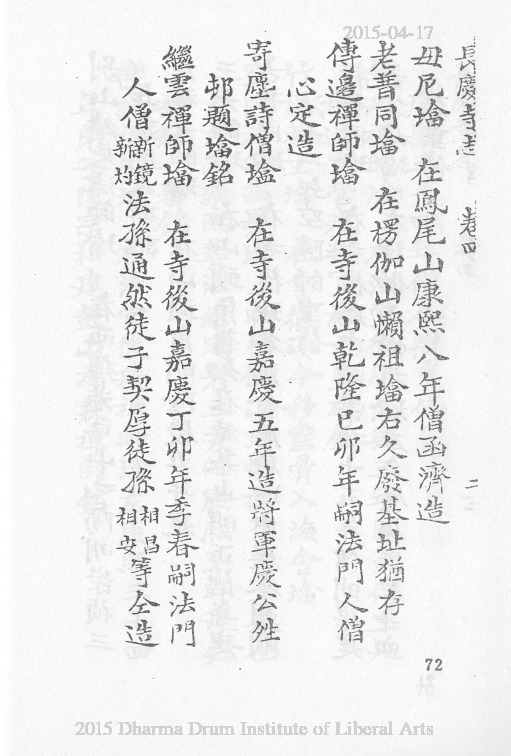 2015-04-17
長慶寺志 卷四 二
毋尼墖 在鳳尾山康熙八年僧函濟造
老普同墖 在楞伽山懶祖墖右久廢基址猶存
傳邊禪師墖 在寺後山乾隆巳卯年嗣法門人僧
心定造
寄塵詩僧墖 在寺後山嘉慶五年造將軍慶公姓
邨題墖銘
繼雲禪師墖 在寺後山嘉慶丁卯年季春嗣法門
人僧新鏡新灼法孫通然徒子契厚徒孫相昌相安等仝造
72
2015 Dharma Drum Institute of Liberal Arts